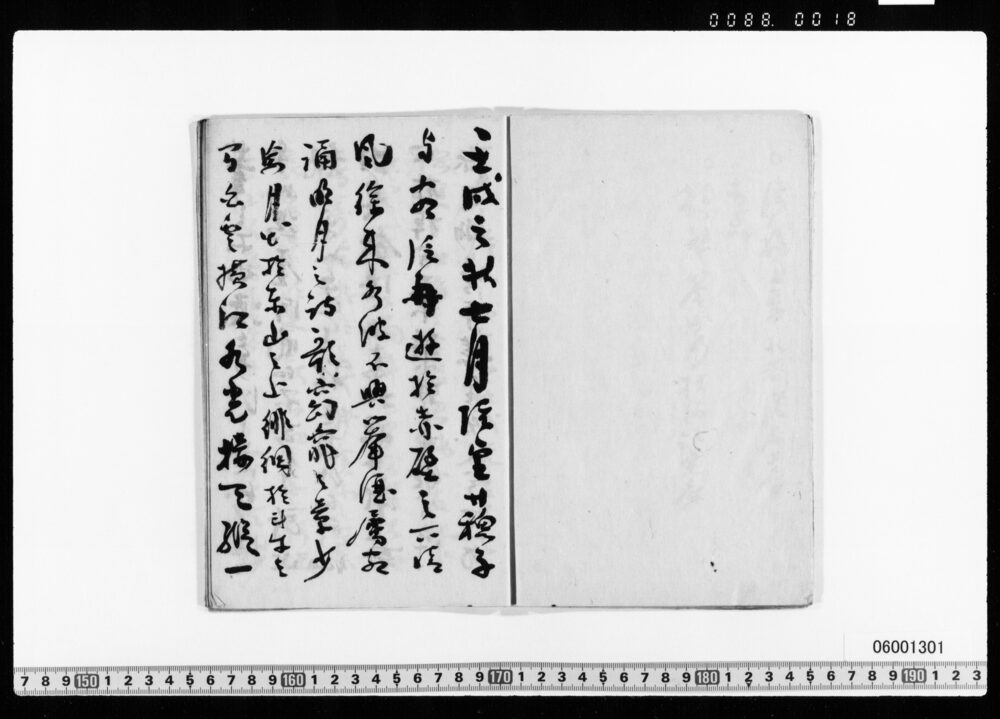 0088. 0018
壬戌之秋七月既望蘇子
与客泛舟遊於赤壁之下清
風徐来水波不興挙酒属客
誦明月之詩歌窈窕之章少
焉月出於東山之上徘徊於斗牛之
間白露横江水光接天縦一
06001301
7 8 9 150 1 2 3 4 5 6 7 8 9 160 1 2 3 4 5 6 7 8 9 170 1 2 3 4 5 6 7 8 9 180 1 2 3 4 5 6 7 8 9 190 1 2 3